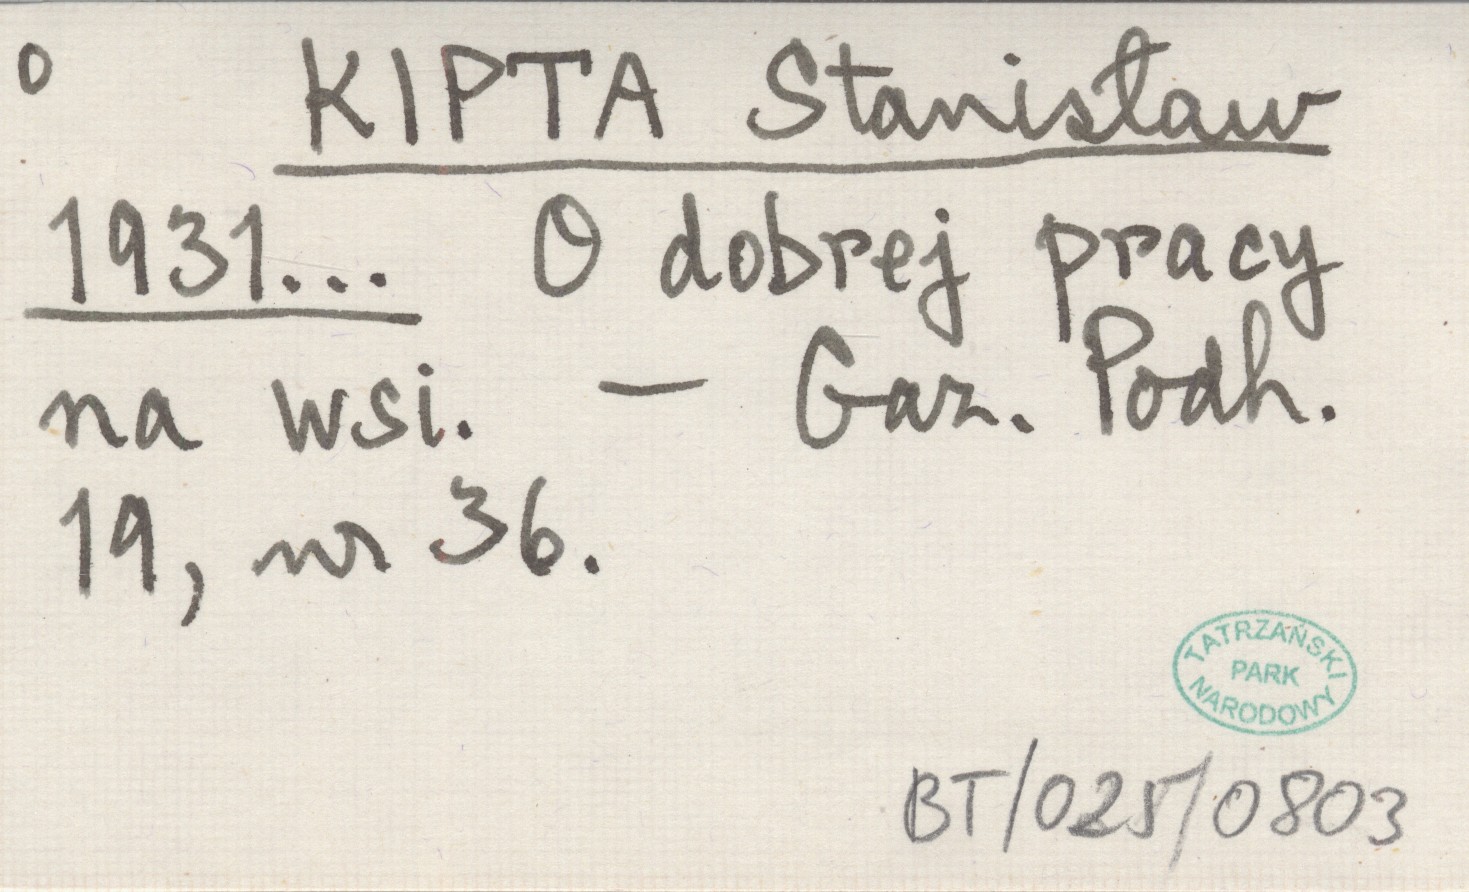 o KIPTA Stanisław
1931... O dobrej pracy
na wsi. — Gaz. Podh.
19, nr 36.
TATRZAŃSKI
PARK
NARODOWY
BT/025/0803